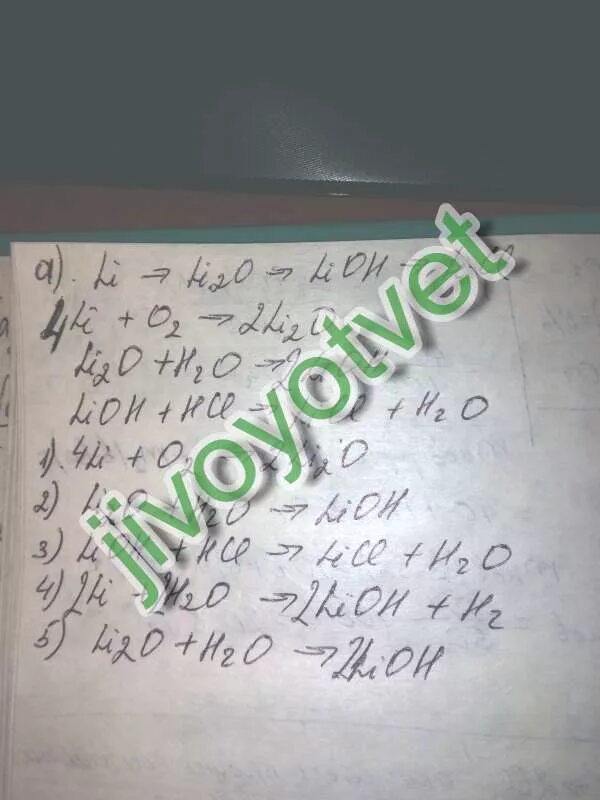 a). Li → Li₂O → LiOH →
4Li + O₂ → 2Li₂O
Li₂O + H₂O →
LiOH + HCl → + H₂O
1). 4Li + O₂ 2Li₂O
2) Li₂O + H₂O → LiOH
3) LiOH + HCl → LiCl + H₂O
4) 2Li 2H₂O → 2LiOH + H₂
5) Li₂O + H₂O → 2LiOH
jivoyotvet